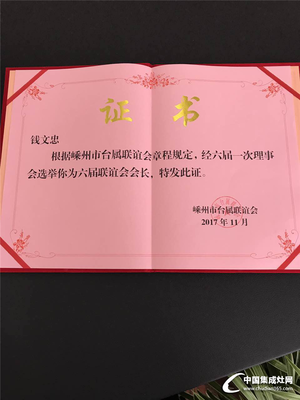 证书
钱文忠
根据嵊州市台属联谊会章程规定，经六届一次理事
会选举你为六届联谊会会长，特发此证。
嵊州市台属联谊会
2017年11月
中国集成灶网
www.chudian001.com